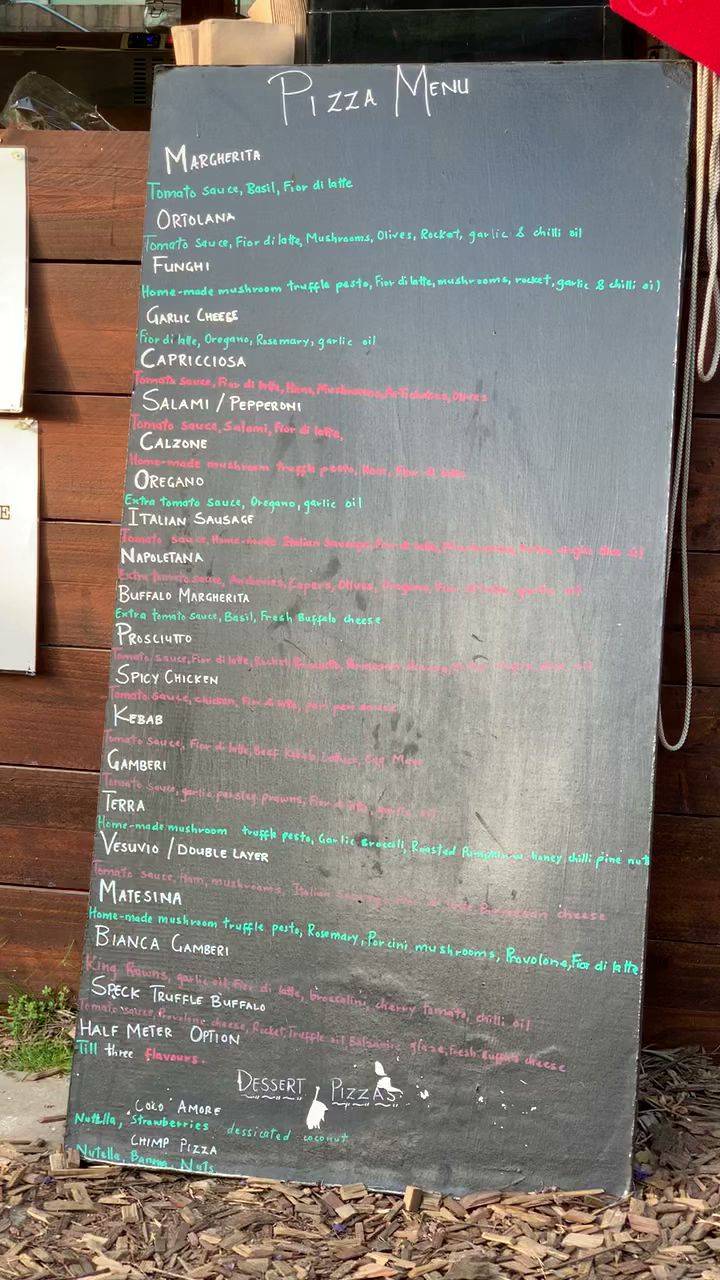 PIZZA MENU
MARGHERITA
Tomato sauce, Basil, Fior di latte
ORTOLANA
Tomato sauce, Fior di latte, Mushrooms, Olives, Rocket, garlic & chilli oil
FUNGHI
Home-made mushroom truffle pesto, Fior di latte, mushrooms, rocket, garlic & chilli oil
GARLIC CHEESE
Fior di latte, Oregano, Rosemary, garlic oil
CAPRICCIOSA
Tomato sauce, Fior di latte, Ham, Mushrooms, Artichokes, Olives
SALAMI / PEPPERONI
Tomato sauce, Salami, Fior di latte,
CALZONE
Home-made mushroom truffle pesto, Ham, Fior di latte
OREGANO
Extra tomato sauce, Oregano, garlic oil
ITALIAN SAUSAGE
Tomato sauce, Home-made Italian Sausage, Fior di latte, oil
NAPOLETANA
Extra tomato sauce, Anchovies, Capers, Olives, Oregano, Fior di latte, garlic oil
BUFFALO MARGHERITA
Extra tomato sauce, Basil, Fresh Buffalo cheese
PROSCIUTTO
Tomato sauce, Fior di latte, Rocket, Prosciutto, Parmesan
SPICY CHICKEN
Tomato sauce, chicken, Fior di latte, peri peri sauce
KEBAB
Tomato sauce, Fior di latte, Beef Kebab, Lettuce, Egg Mayo
GAMBERI
Tomato sauce, garlic parsley prawns, Fior di latte, garlic oil
TERRA
Home-made mushroom truffle pesto, Garlic Broccoli, Roasted Pumpkin honey chilli pine nuts
VESUVIO / DOUBLE LAYER
Tomato sauce, Ham, mushrooms, Italian Parmesan cheese
MATESINA
Home-made mushroom truffle pesto, Rosemary, Porcini mushrooms, Provolone, Fior di latte
BIANCA GAMBERI
King Prawns, garlic oil, Fior di latte, broccolini, cherry tomato, chilli oil
SPECK TRUFFLE BUFFALO
Tomato sauce, Provolone cheese, Rocket, Truffle oil, Balsamic glaze, Fresh Buffalo cheese
HALF METER OPTION
Till three flavours.
DESSERT PIZZAS
COCO AMORE
Nutella, Strawberries dessicated coconut
CHIMP PIZZA
Nutella, Banana, Nuts
E